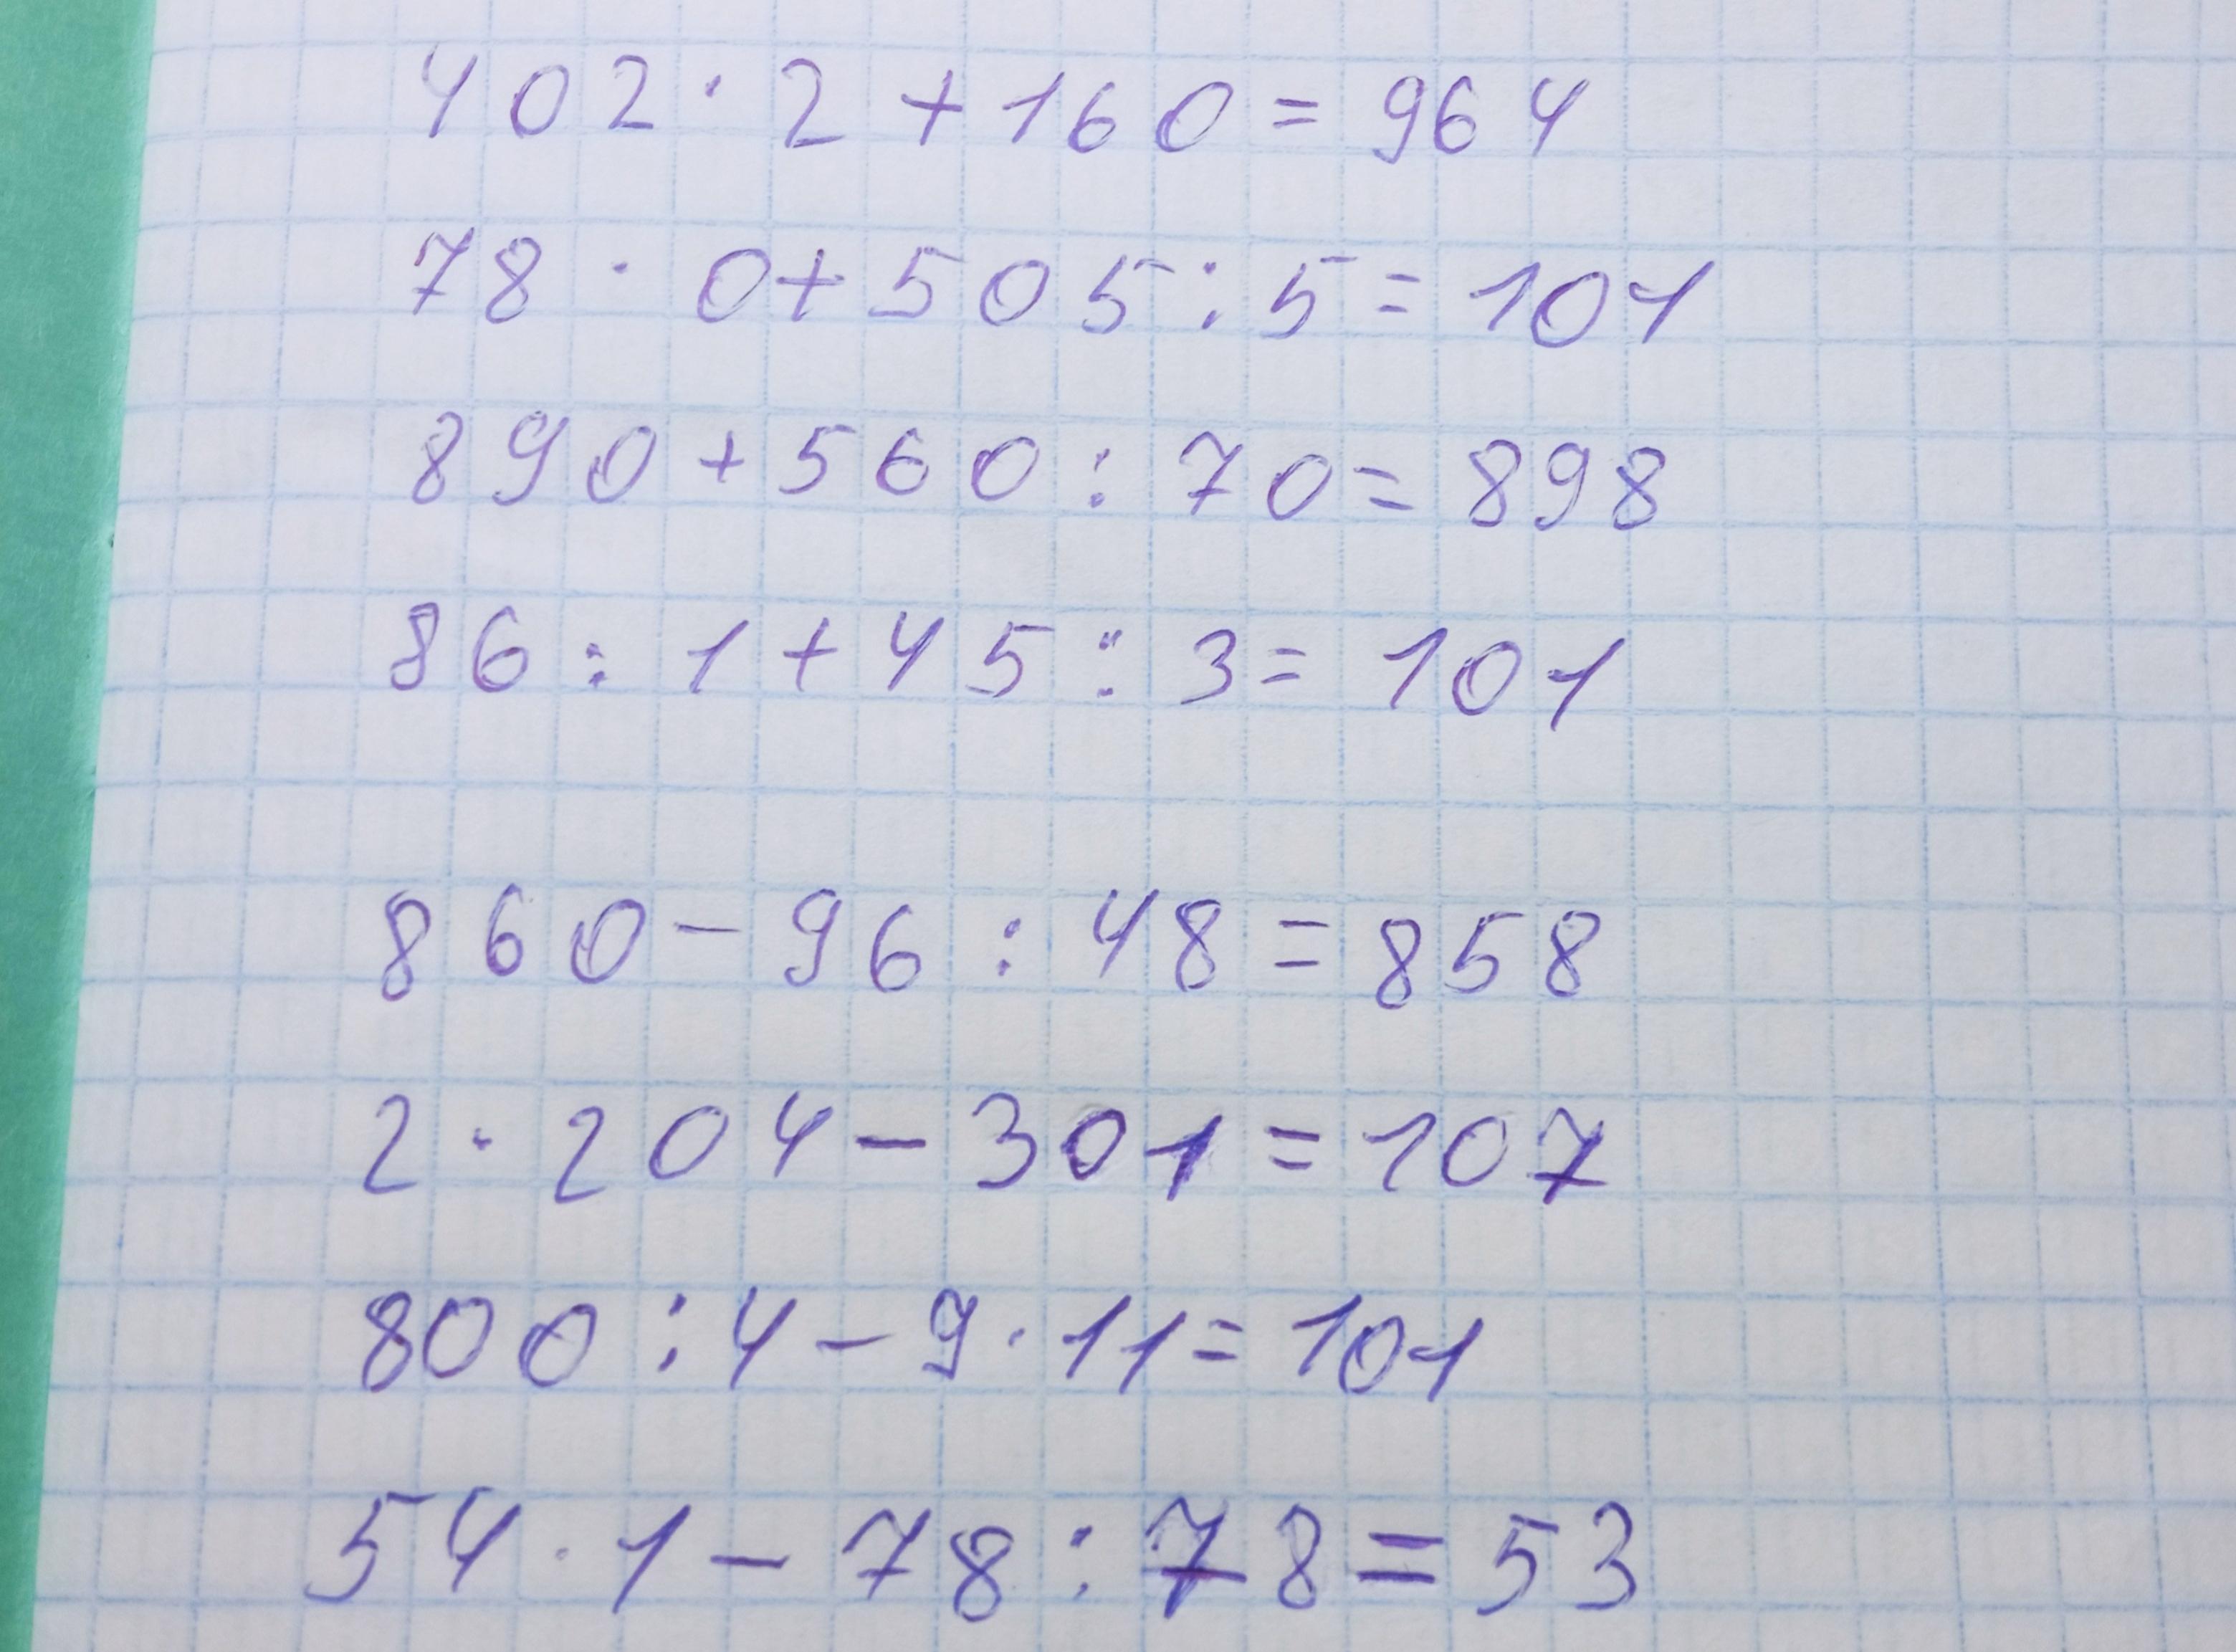 402 · 2 + 160 = 964
78 · 0 + 505 : 5 = 101
890 + 560 : 70 = 898
86 : 1 + 45 : 3 = 101
860 - 96 : 48 = 858
2 · 204 - 301 = 107
800 : 4 - 9 · 11 = 101
54 · 1 - 78 : 78 = 53